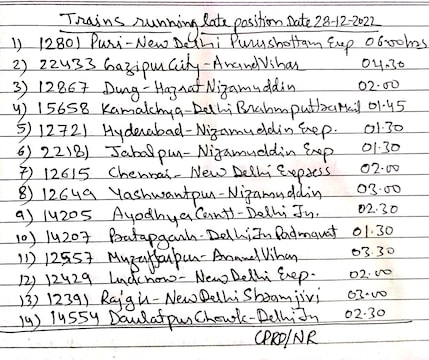 Trains running late position Date 28-12-2022
1) 12801 Puri-New Delhi Purushottam Exp 06.00hrs
2) 22433 Gazipur City-Anand Vihar 04.30
3) 12867 Durg-Hazrat Nizamuddin 02.00
4) 15658 Kamakhya-Delhi Brahmputra Mail 01.45
5) 12721 Hyderabad-Nizamuddin Exp. 01.30
6) 22181 Jabalpur-Nizamuddin Exp 01.30
7) 12615 Chennai-New Delhi Express 02.00
8) 12649 Yashwantpur-Nizamuddin 03.00
9) 14205 Ayodhya Cantt-Delhi Jn. 02.30
10) 14207 Pratapgarh-Delhi Jn Padmavat 01.30
11) 12557 Muzaffarpur-Anand Vihar 03.30
12) 12429 Lucknow-New Delhi Exp. 02.00
13) 12391 Rajgir-New Delhi Shramjivi 03.00
14) 14554 Daulatpur Chowk-Delhi Jn 02.30
CPRO/NR